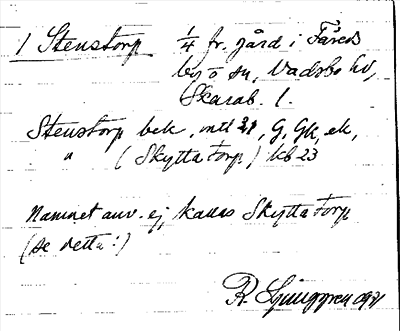 1 Stenstorp 1/4 fr. gård i Fåreds
by o sn, Vadsbo hd,
Skarab. l.
Stenstorp bek, mtl 21, G, Gk, ek,
" (Skyttatorp) kb 23
Namnet anv. ej, kallas Skyttatorp
(se detta!)
R. Ljunggren